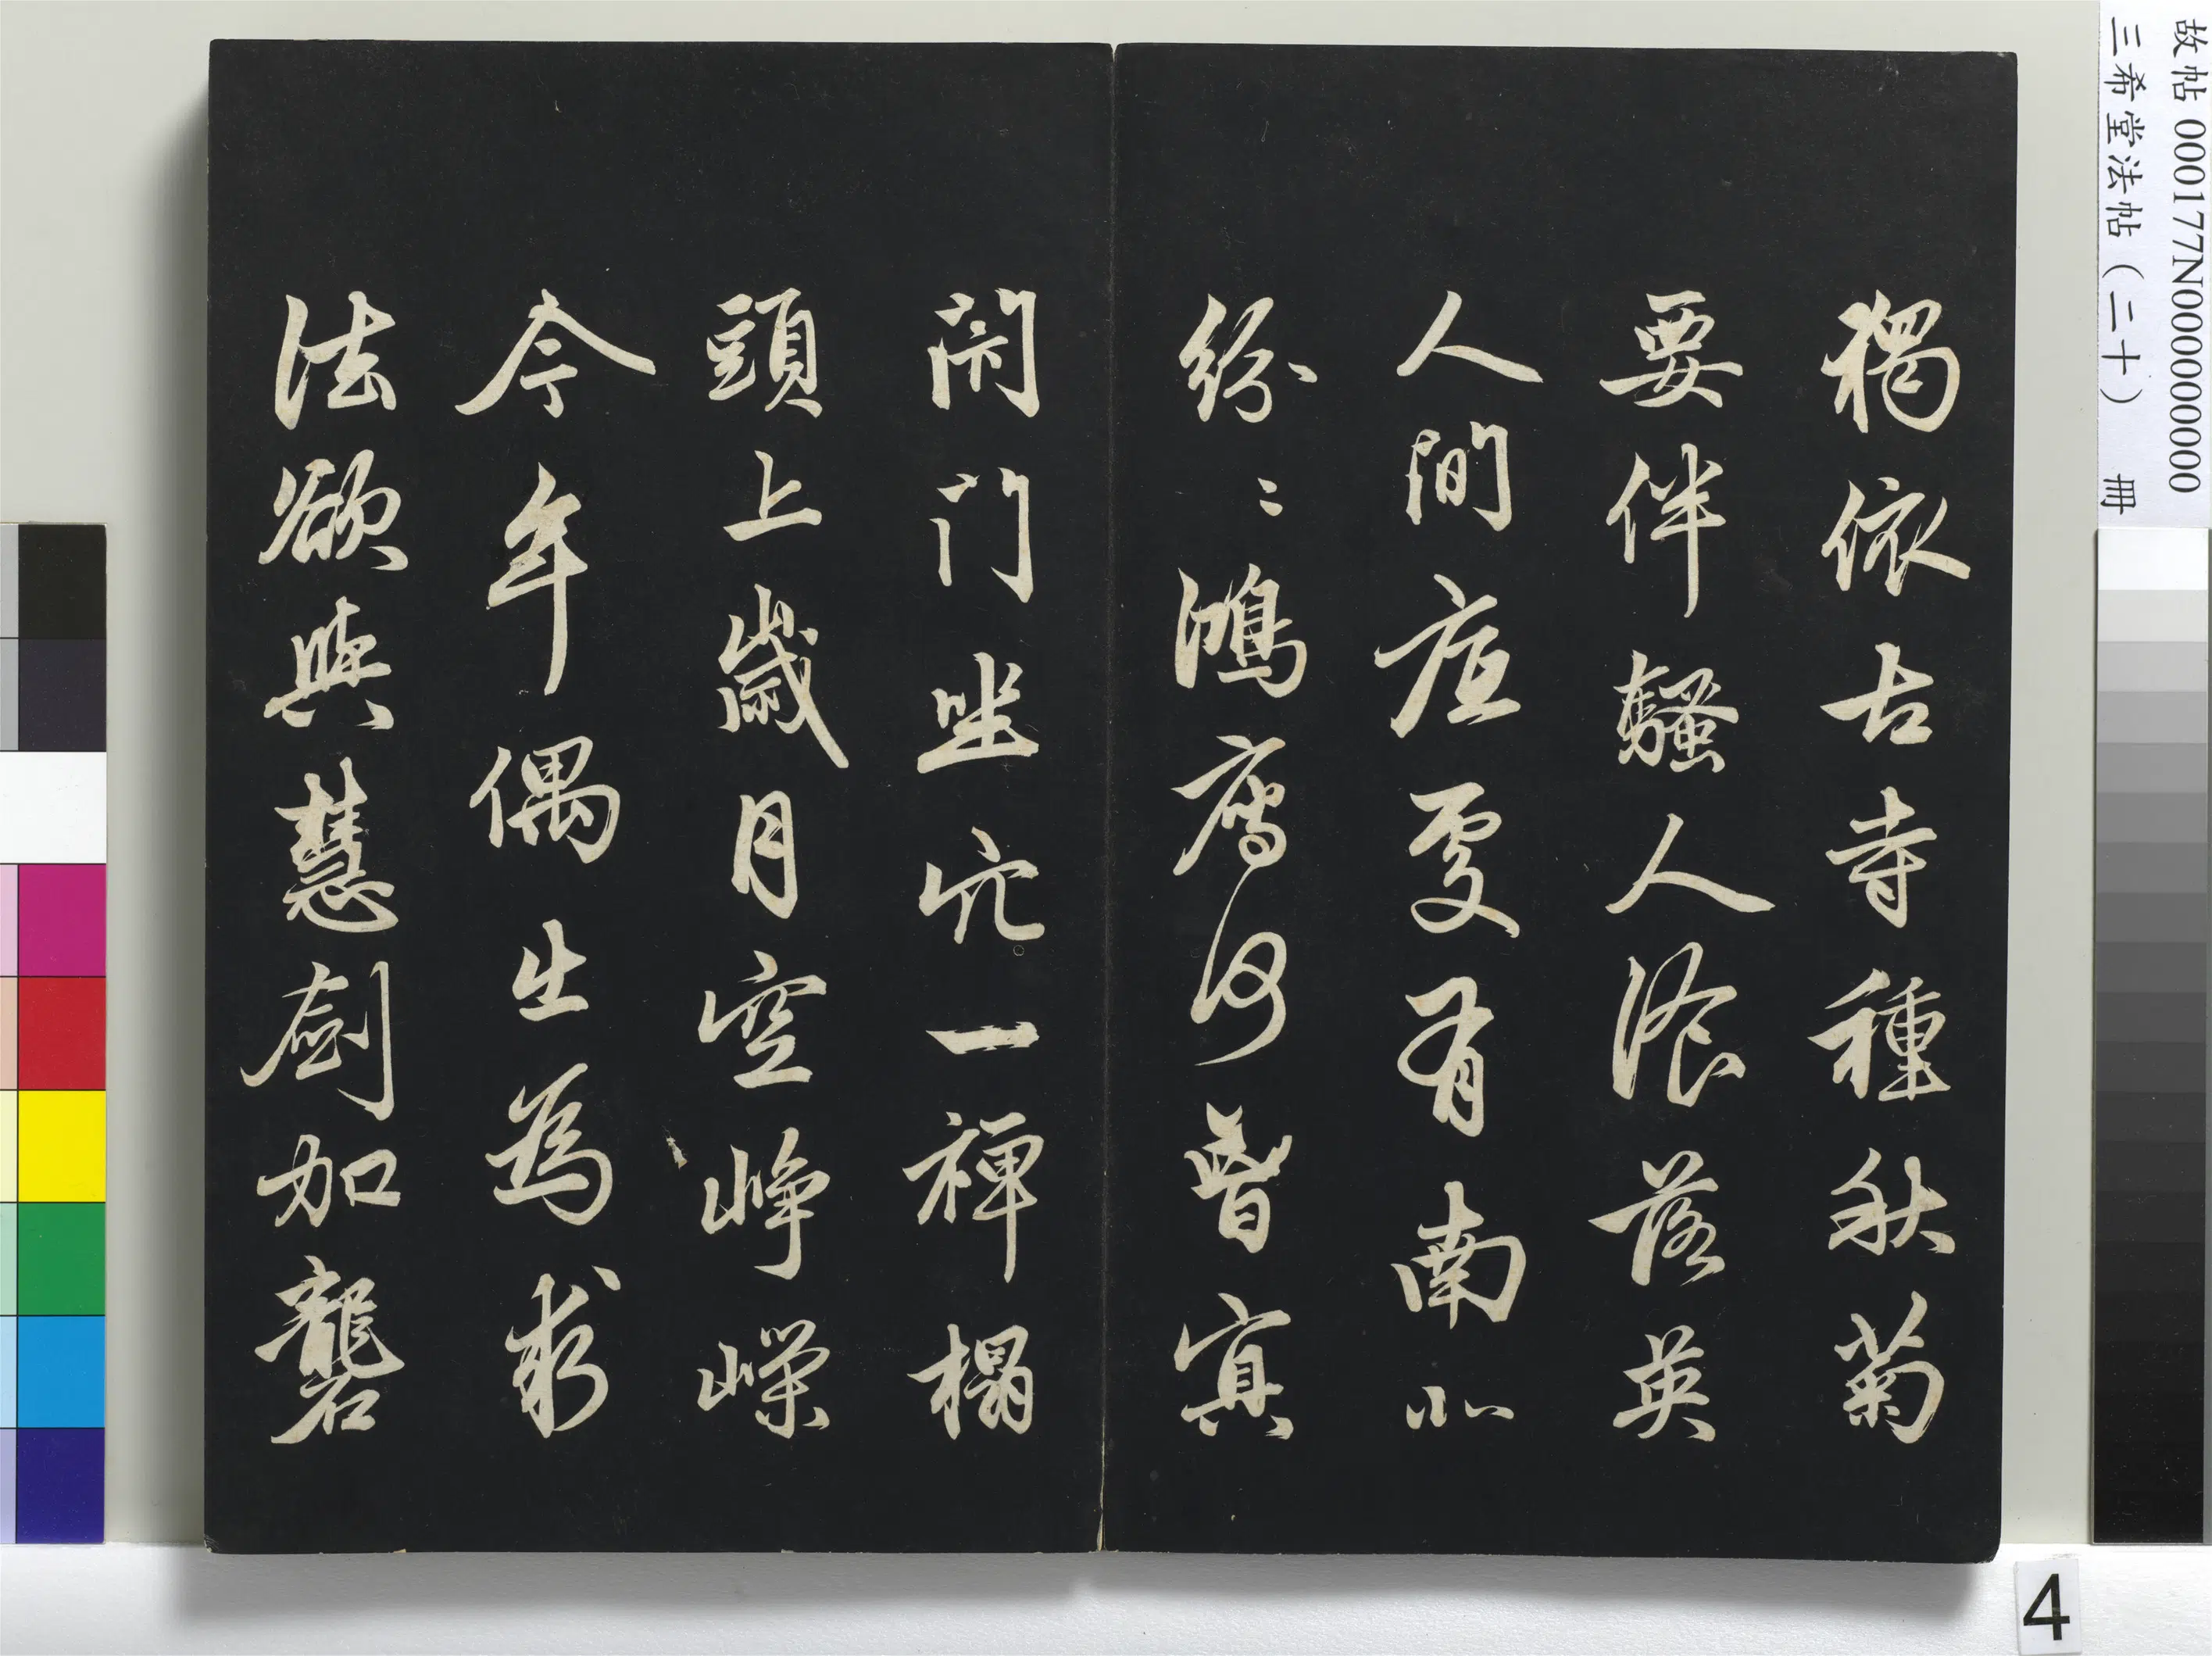 故帖 000177N000000000
三希堂法帖（二十） 冊
獨依古寺種秋菊
要伴騷人湌落英
人間底處有南北
紛〻鴻鴈何曾冥
閉門坐穴一禪榻
頭上歲月空崢嶸
今年偶出為求
法欲與慧劍加礱
4